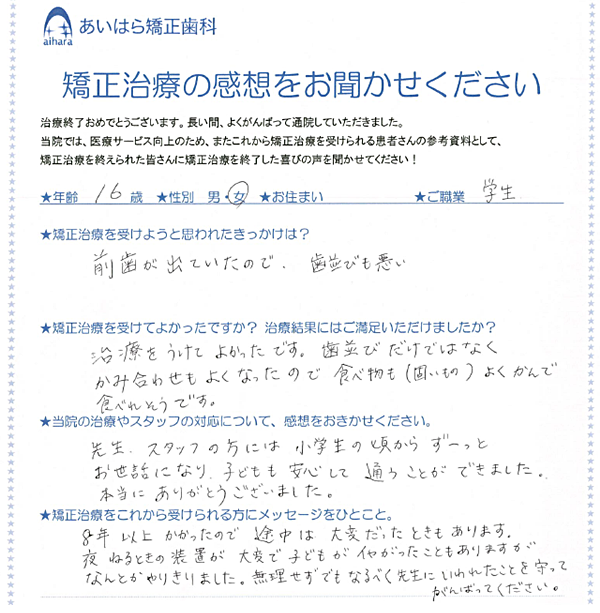 aihara
あいはら矯正歯科
矯正治療の感想をお聞かせください
治療終了おめでとうございます。長い間、よくがんばって通院していただきました。
当院では、医療サービス向上のため、またこれから矯正治療を受けられる患者さんの参考資料として、
矯正治療を終えられた皆さんに矯正治療を終了した喜びの声を聞かせてください！
★年齢 16 歳 ★性別 男・女 ★お住まい ★ご職業 学生
★矯正治療を受けようと思われたきっかけは？
前歯が出ていたので. 歯並びも悪い
★矯正治療を受けてよかったですか？ 治療結果にはご満足いただけましたか？
治療をうけて よかったです。歯並びだけではなく
かみ合わせもよくなったので 食べ物も(固いもの)よくかんで
食べれそうです。
★当院の治療やスタッフの対応について、感想をおきかせください。
先生. スタッフの方には 小学生の頃から ずーっと
お世話になり. 子どもも 安心して 通うことが できました。
本当に ありがとうございました。
★矯正治療をこれから受けられる方にメッセージをひとこと。
8年 以上 かかったので 途中は 大変だったときもあります.
夜 ねるときの装置が 大変で 子どもが イヤがったこともありますが
なんとかやりきりました。無理せずでもなるべく先生にいわれたことを守って
がんばってください。